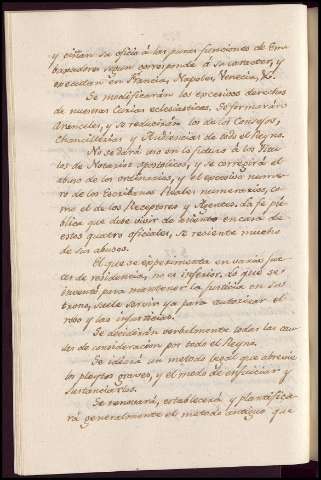 y ciñan su oficio á las puras funciones de Em-
baxadores segun corresponde á su caracter, y
executan en Francia, Napoles, Venecia, &c.
Se modificarán los excesivos derechos
de nuestras Curias eclesiasticas. Se formarán
Aranceles, y se reducirán los de los Consejos,
Chancillerias y Audiencias de todo el Reyno.
No se dará uso en lo futuro á los títu-
los de Notarios apostolicos, y se corregirá el
abuso de los ordinarios, y el excesivo nume-
ro de los Escribanos Reales numerarios, co-
mo el de los Receptores y Agentes. La fe pú-
blica que debe vivir de asiento en casa de
estos quatro oficiales, se resiente mucho
de sus abusos.
El que se experimenta en varios jue-
ces de residencia, no es inferior. Lo que se
inventó para mantener la justicia en su
trono, suele servir ya para autorizar el
robo y las injusticias.
Se decidirán verbalmente todas las cau-
sas de consideracion por todo el Reyno.
Se ideará un metodo legal que abrevie
los pleytos graves, y el modo de enjuiciar y
substanciarlos.
Se renovará, establecerá y plantifica-
rá generalmente el metodo antiguo que